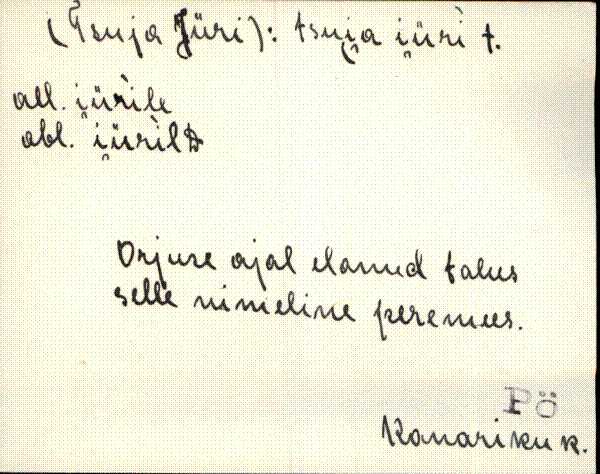 (Tsuja Jüri): tsui̯a i̯ür̀i t.
all. i̯ür̀ile
abl. i̯ür̀ilD
Orjuse ajal elanud talus
selle nimeline peremees.
Pö
Kanariku k.